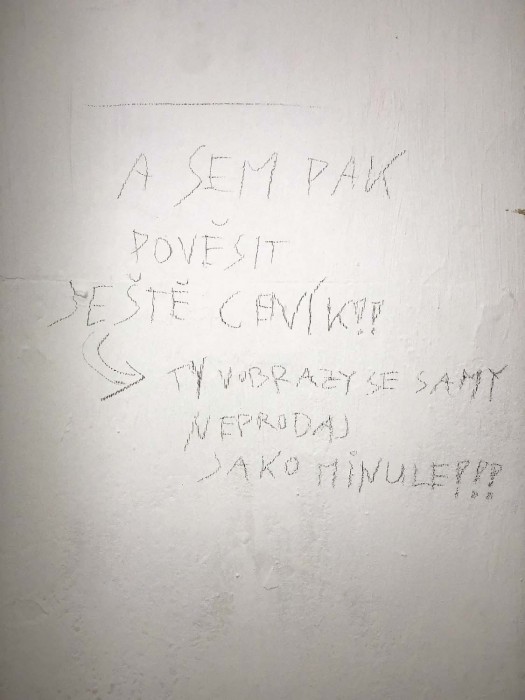 A SEM PAK
POVĚSIT
JEŠTĚ CENÍK!!
TY VOBRAZY SE SAMY
NEPRODAJ
JAKO MINULE!!!